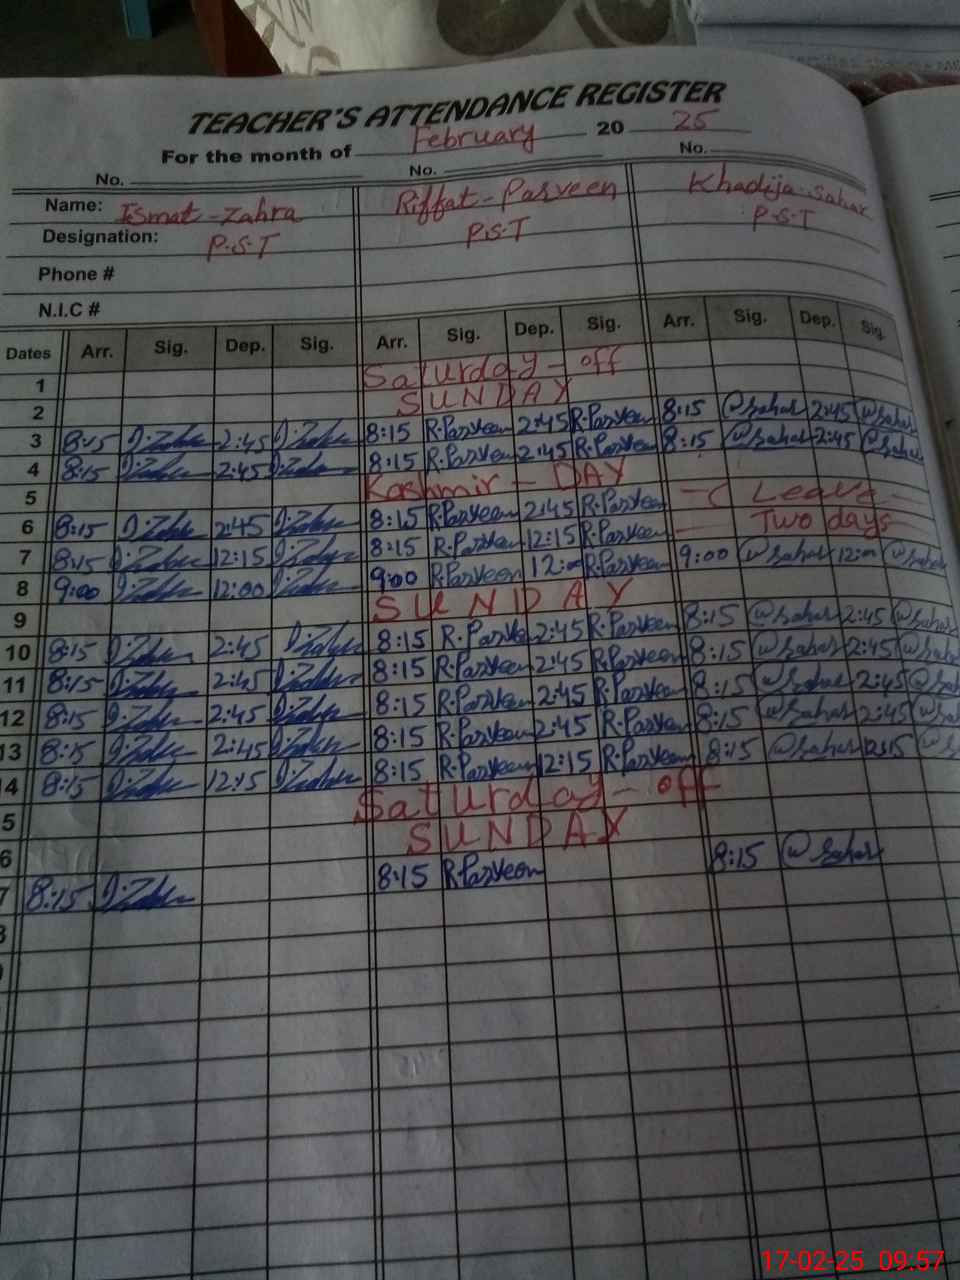 TEACHER'S ATTENDANCE REGISTER
For the month of February 20 25
No. No. No.
Name: Ismat-Zahra Riffat-Parveen Khadija-Sahar
Designation: P.S.T P.S.T P.S.T
Phone #
N.I.C #
Dates Arr. Sig. Dep. Sig. Arr. Sig. Dep. Sig. Arr. Sig. Dep. Sig.
1 Saturday - off
2 SUNDAY
3 8:15 2:45 8:15 R.Parveen 2:45 R.Parveen 8:15 Sahar 2:45 Sahar
4 8:15 2:45 8:15 R.Parveen 2:45 R.Parveen 8:15 Sahar 2:45 Sahar
5 Kashmir - DAY
6 8:15 2:45 8:15 R.Parveen 2:45 R.Parveen Leave
7 8:15 12:15 8:15 R.Parveen 12:15 R.Parveen Two days
8 9:00 12:00 9:00 R.Parveen 12:00 R.Parveen 9:00 Sahar 12:00 Sahar
9 SUNDAY
10 8:15 2:45 8:15 R.Parveen 2:45 R.Parveen 8:15 Sahar 2:45 Sahar
11 8:15 2:45 8:15 R.Parveen 2:45 R.Parveen 8:15 Sahar 2:45 Sahar
12 8:15 2:45 8:15 R.Parveen 2:45 R.Parveen 8:15 Sahar 2:45 Sahar
13 8:15 2:45 8:15 R.Parveen 2:45 R.Parveen 8:15 Sahar 2:45
14 8:15 12:15 8:15 R.Parveen 12:15 R.Parveen 8:15 Sahar 12:15
5 Saturday - off
6 SUNDAY
7 8:15 8:15 R.Parveen 8:15 Sahar
17-02-25 09:57